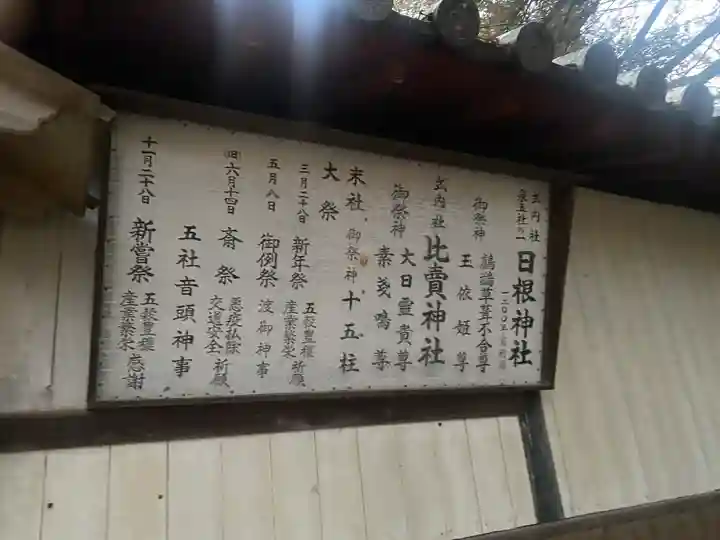 式内社
泉五社の一
日根神社
御祭神
鸕鷀草葺不合尊
玉依姫尊
式内社
比賣神社
御祭神
大日霊貴尊
素戔嗚尊
末社 御祭神 十五柱
大祭
三月二十八日 新年祭 五穀豊穰 産業繁栄 祈願
五月八日 御例祭 渡御神事
旧六月十四日 斎祭 悪疫払除 交通安全 祈願
五社音頭神事
十一月二十八日 新嘗祭 五穀豊穰 産業繁栄 感謝